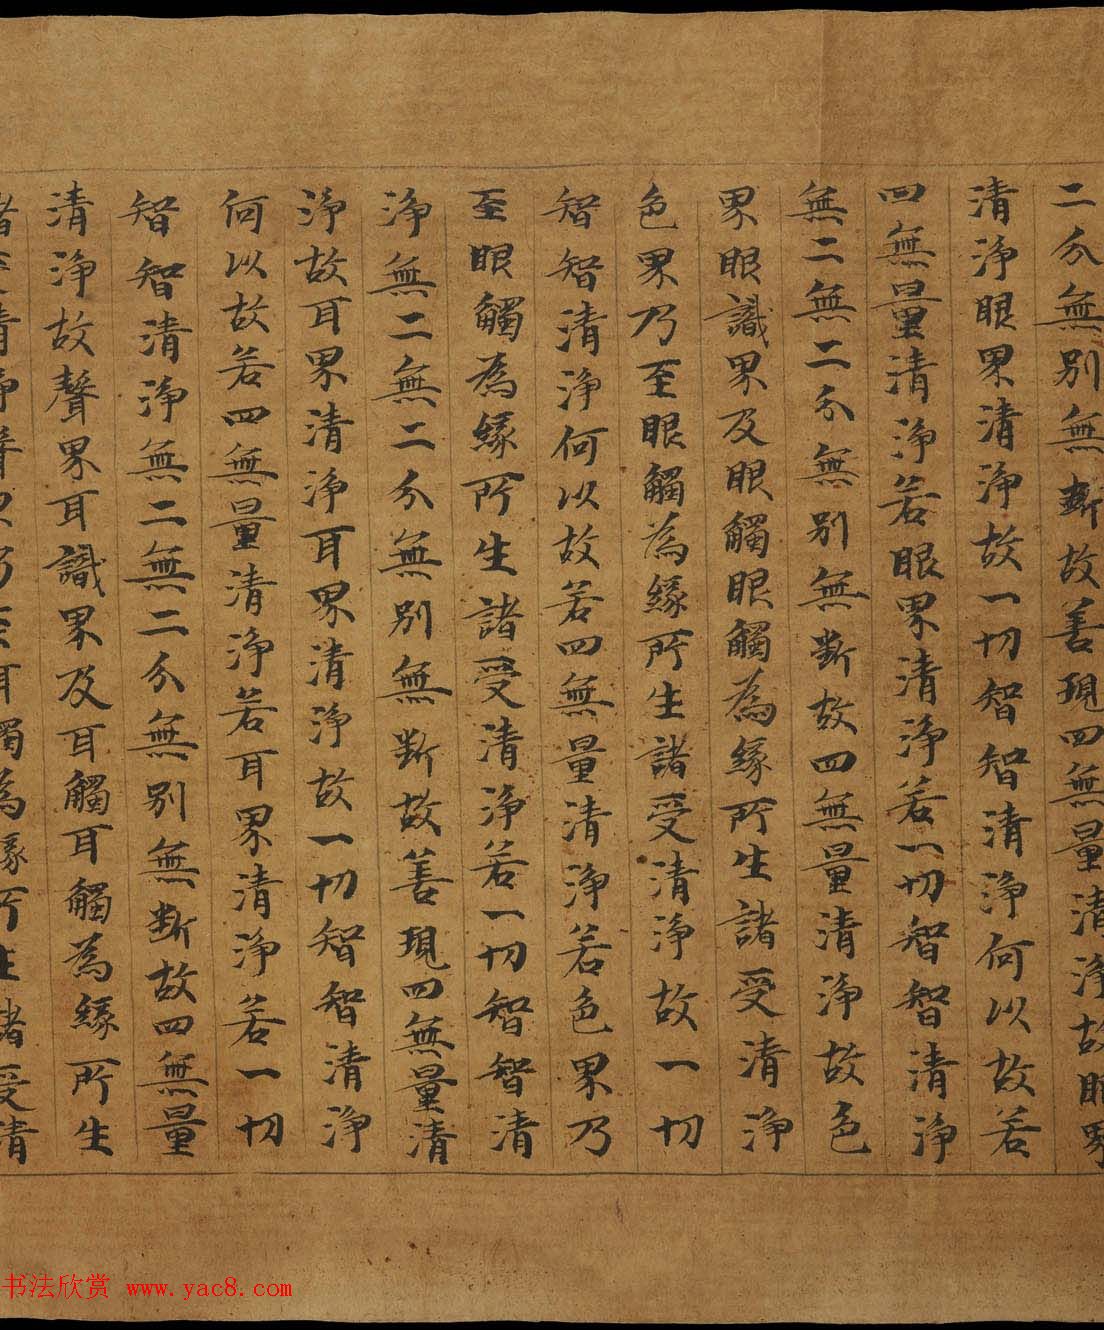 二分無別無斷故善現四無量清淨故眼界
清淨眼界清淨故一切智智清淨何以故若
四無量清淨若眼界清淨若一切智智清淨
無二無二分無別無斷故四無量清淨故色
界眼識界及眼觸眼觸為緣所生諸受清淨
色界乃至眼觸為緣所生諸受清淨故一切
智智清淨何以故若四無量清淨若色界乃
至眼觸為緣所生諸受清淨若一切智智清
淨無二無二分無別無斷故善現四無量清
淨故耳界清淨耳界清淨故一切智智清淨
何以故若四無量清淨若耳界清淨若一切
智智清淨無二無二分無別無斷故四無量
清淨故聲界耳識界及耳觸耳觸為緣所生
諸受清淨聲界乃至耳觸為緣所生諸受清
书法欣赏 www.yac8.com